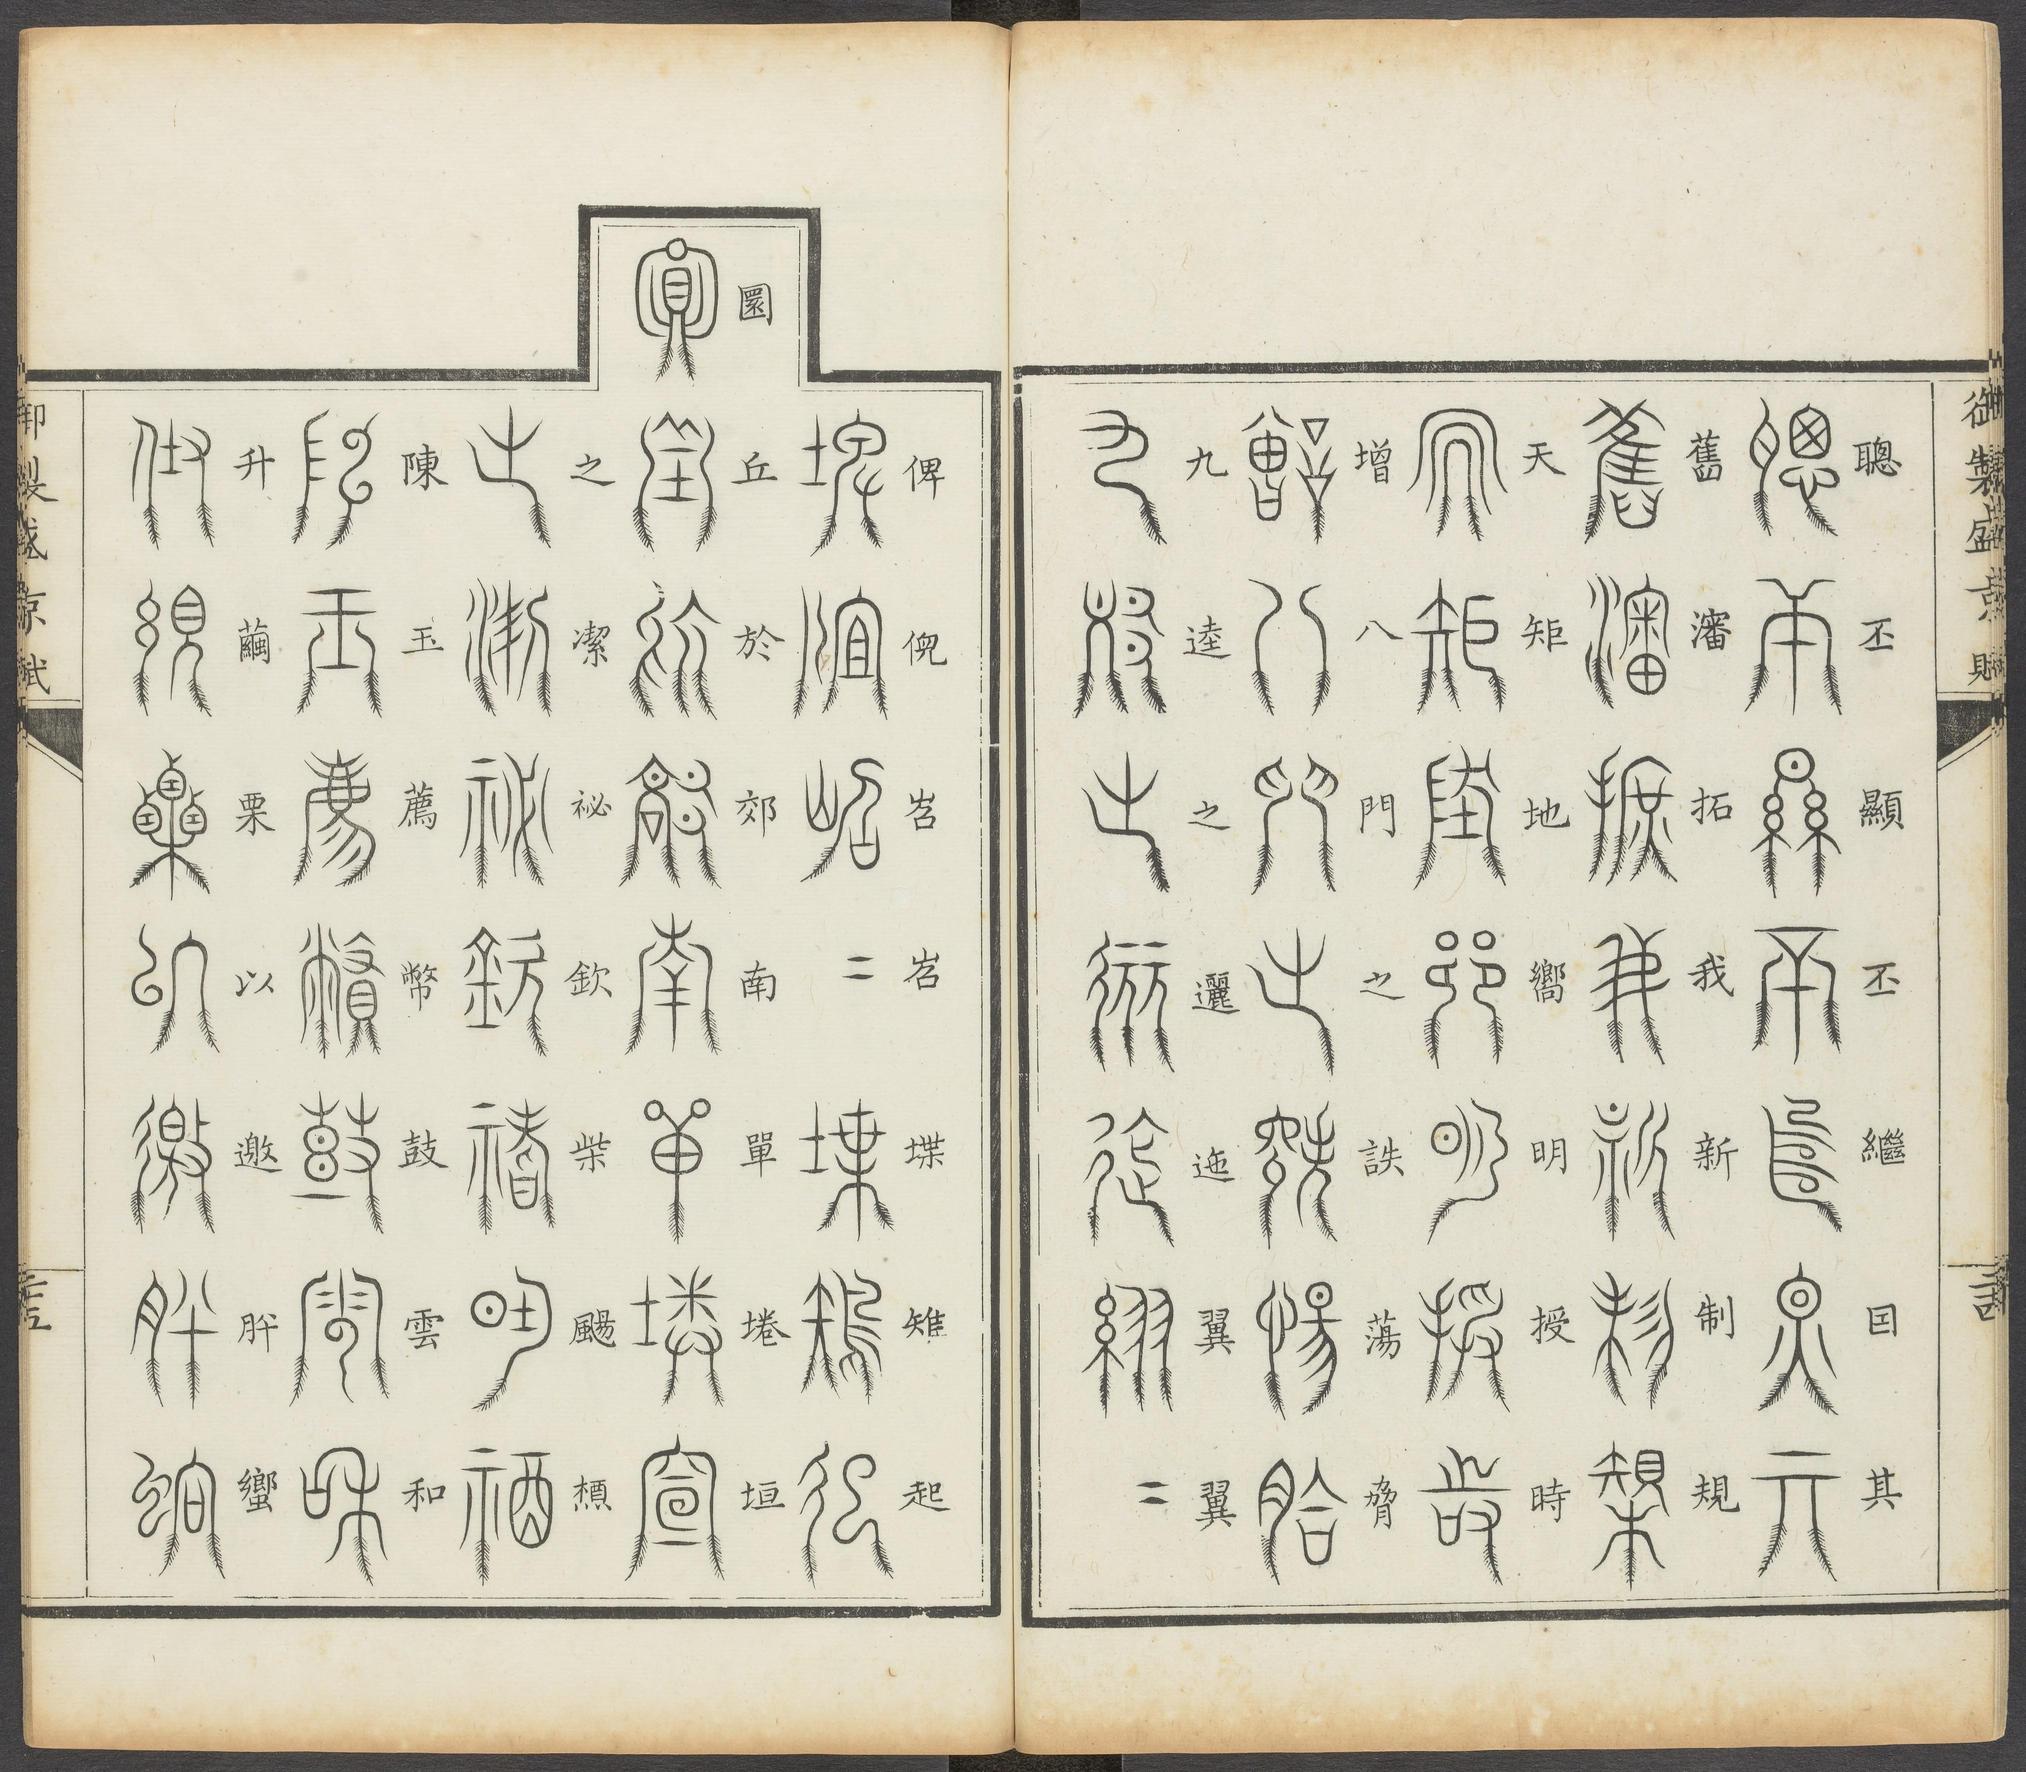 御製盛京賦
聰丕顯丕繼囙其
舊瀋拓我新制規
天矩地嚮明授時
增八門之詄蕩脅
九逵之邐迤翼翼
俾倪岧岧堞雉起
圜丘於郊南單埢垣
之潔祕欽柴颺槱
陳玉薦幣鼓雲和
升繭栗以邀肸蠁
御製盛京賦